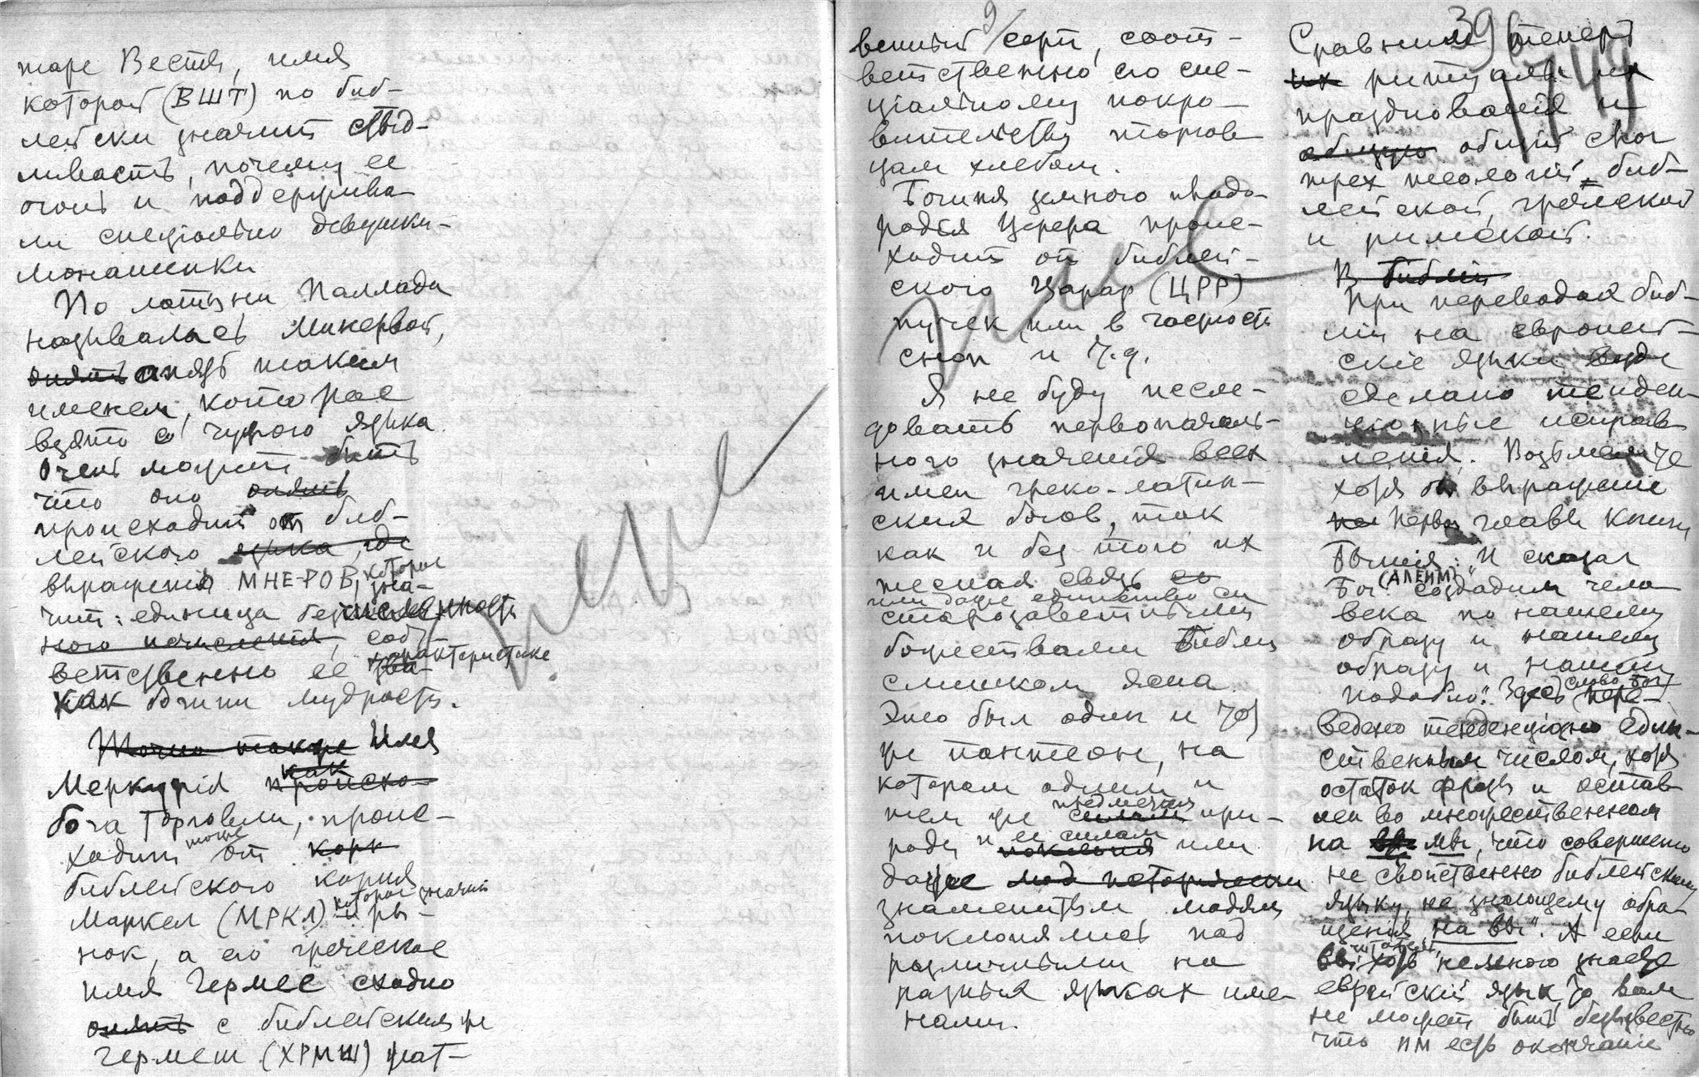 таре Веста, имя
которой (ВШТ) по биб-
лейски значит стыд-
ливость, почему ее
очаг и поддержива-
ли специально девушки-
монашенки
По латыни Паллада
называлась Минервой,
опять опять таким
именем, которое
взято с чужого языка.
Очень может быть
что оно опять
происходит от биб-
лейского языка, где
выражения МНЕ-РОВ, которое зна-
чит: единица бесчисленность
ного исчисления, соот-
ветственно ее характеристике
как богини мудрости.
Точно также Имя
Меркурия как происхо-
бога торговли, проис-
ходит тоже от корн
библейского корня
Маркел (МРКЛ) которое значит ры-
нок, а его греческое
имя Гермес сходно
опять с библейским же
гермеш (ХРМШ) жат-
9/
венный серп, соот-
ветственно его спе-
циальному покро-
вительству торгов-
цам хлебом.
Богиня земного плодо-
родья Церера проис-
ходит от библей-
ского Царар (ЦРР)
пучек или в частности
сноп и т.д.
Я не буду иссле-
довать первоначаль-
ного значения всех
имен греко-латин-
ских богов, так
как и без того их
тесная связь со
или даже единство с
старозаветными
божествами Библии
слишком ясна
Это был один и тот
же пантеон, на
котором одним и
тем же предметам силам при-
роды и ее силам или
даже под исторически
знаменитым людям
поклонялись под
различными на
разных языках име-
нами.
396
1749
Сравним теперь
их ритуалы их
празднования и
общую общий смысл
трех теологий - биб-
лейской, греческой
и римской.
В библии
При переводах биб-
лии на европей-
ские языки
сделано тенден-
циозные исправ-
ления. Возьмем уже
хотя бы выражение
первой главы книги
Бытия: "И сказал
Бог (АЛЕИМ) создадим чело-
века по нашему
образу и нашему
образу и нашему
подобию". Здесь слово бог пере-
ведено тенденциозно един-
ственным числом, хотя
остаток фразы и остав-
лен во множественном
на вы мы, что совершенно
не свойственно библейскому
языку, не знающему обра-
щения "на вы". А если
вы, читатель, хоть немного знаете
еврейский язык, то вам
не может быть безызвестно
что ИМ есть окончание